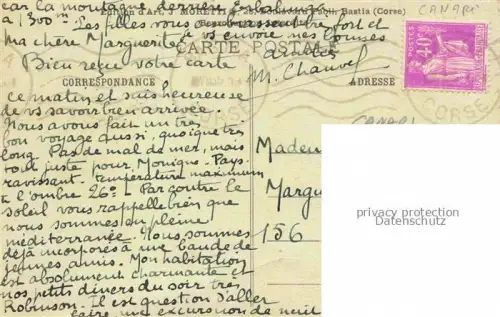 car la montagne derrière
à 1300m. Les filles vous rassemblent fort et
Ma chère Marguerite, je vs envoie nos
M. Chauvel
CANARI
Bastia (Corse)
CARTE POSTALE
Bien reçu votre carte
CORRESPONDANCE
ADRESSE
POSTES
40c
CORSE
ce matin et suis heureuse
de vs savoir bien arrivée.
Nous avons fait un très
bon voyage aussi, quoique très
long. Pas de mal de mer, mais
tout juste pour Monique. Pays
ravissant. Température maximum
à l'ombre 26°. Par contre le
soleil vous rappelle bien que
nous sommes en pleine
méditerranée. Nous sommes
déjà incorporés à une bande de
jeunes amis. Mon habitation
est absolument charmante et
nos petits dîners du soir très
Robinson. Il est question d'aller
faire une excursion de nuit
CANARI
Madem
Margu
156
privacy protection
Datenschutz